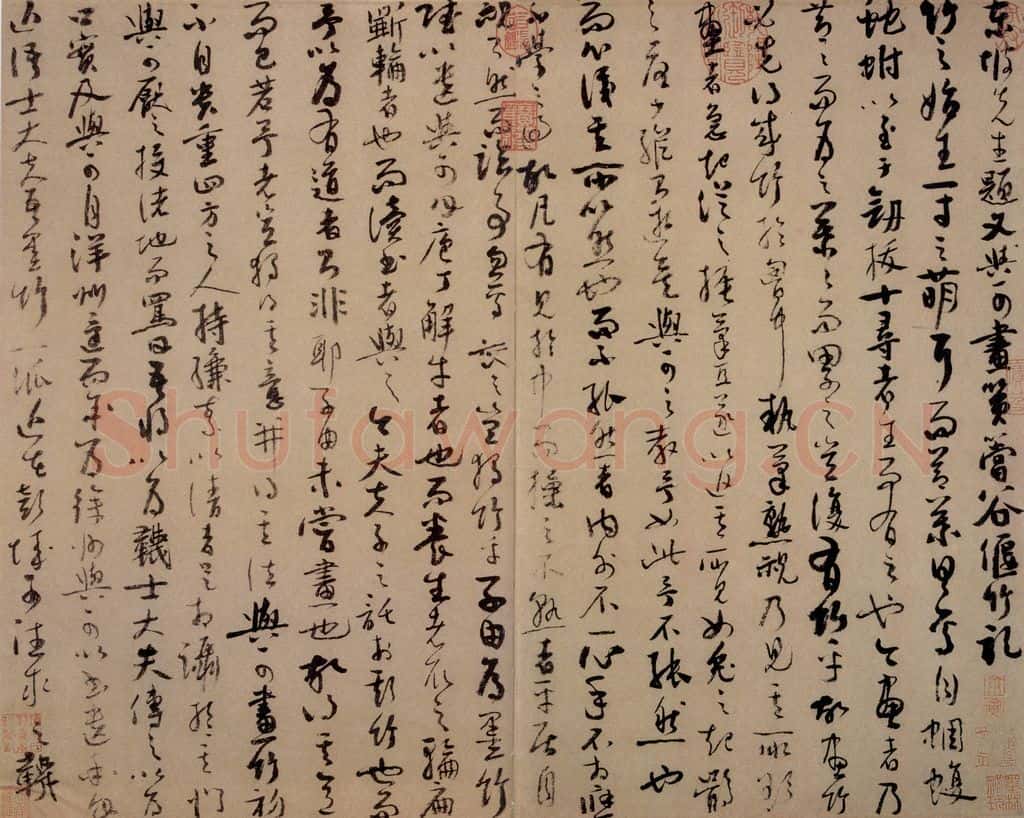 東坡先生題文與可畫篔簹谷偃竹記
竹之始生一寸之萌耳而節葉具焉自蜩蝮
蛇蚹以至于劍拔十尋者生而有之也今畫者乃
節節而為之葉葉而累之豈復有竹乎故畫竹
必先得成竹於胸中執筆熟視乃見其所欲
畫者急起從之振筆直遂以追其所見如兔之起鶻
之落少縱則逝矣與可之教予如此予不能然也
而心識其所以然也而不能然者內外不一心手不相應
不學之過也故凡有見於中而操之不熟者平居自
視了然而臨事忽焉喪之豈獨竹乎子由為墨竹
賦以遺與可曰庖丁解牛者也而養生者取之輪扁
斲輪者也而讀書者與之今夫夫子之託於斯竹也而
予以為有道者則非耶子由未嘗畫也故得其意
而已若予者豈獨得其意并得其法與可畫竹初
不自貴重四方之人持縑素以請者足相躡於其門
與可厭之投諸地而罵曰吾將以為韈士大夫傳之以為
口實及與可自洋州還而余為徐州與可以書遺余曰
近語士大夫吾墨竹一派近在彭城可往求之韈
Shufawang.CN